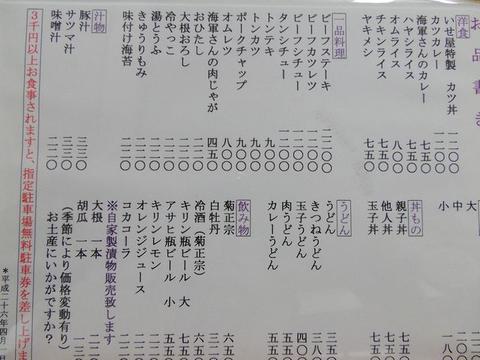 お品書き
洋食
いせ屋特製 カツ丼 一二〇〇
カツカレー
海軍さんのカレー 七五〇
ハヤシライス
オムライス 七五〇
チキンライス 七五〇
ヤキメシ 七五〇
一品料理
ビーフステーキ 二二〇〇
ビーフカツレツ 一二〇〇
ビーフシチュー 一二〇〇
タンシチュー 一二〇〇
トンテキ 九〇〇
トンカツ 九〇〇
ポークチャップ 九〇〇
オムレツ 八〇〇
海軍さんの肉じゃが 四五〇
おひたし
大根おろし
冷やっこ
湯どうふ
きゅうりもみ
味付け海苔
汁物
豚汁 三三〇
サツマ汁 三三〇
味噌汁 二二〇
3千円以上お食事されますと、指定駐車場無料駐車券を差し上げま
大
中
小
丼もの
親子丼
他人丼
玉子丼
うどん
うどん
きつねうどん
玉子うどん
肉うどん
カレーうどん
飲み物
菊正宗
白牡丹
冷酒(菊正宗)
キリン瓶ビール 大
アサヒ瓶ビール 小
キリンレモン
オレンジジュース
コカコーラ
※自家製漬物販売致します
大根 一本
胡瓜 一本
(季節により価格変動有り)
お土産にいかがですか?
*平成二十六年四月一